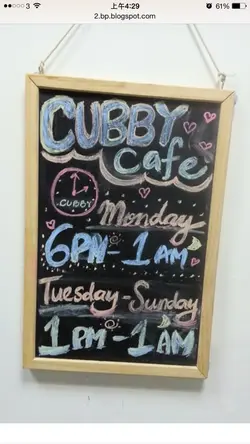 3 上午4:29 61%
2.bp.blogspot.com
CUBBY
Cafe
CUBBY
Monday
6PM-1AM
Tuesday-Sunday
1PM-1AM